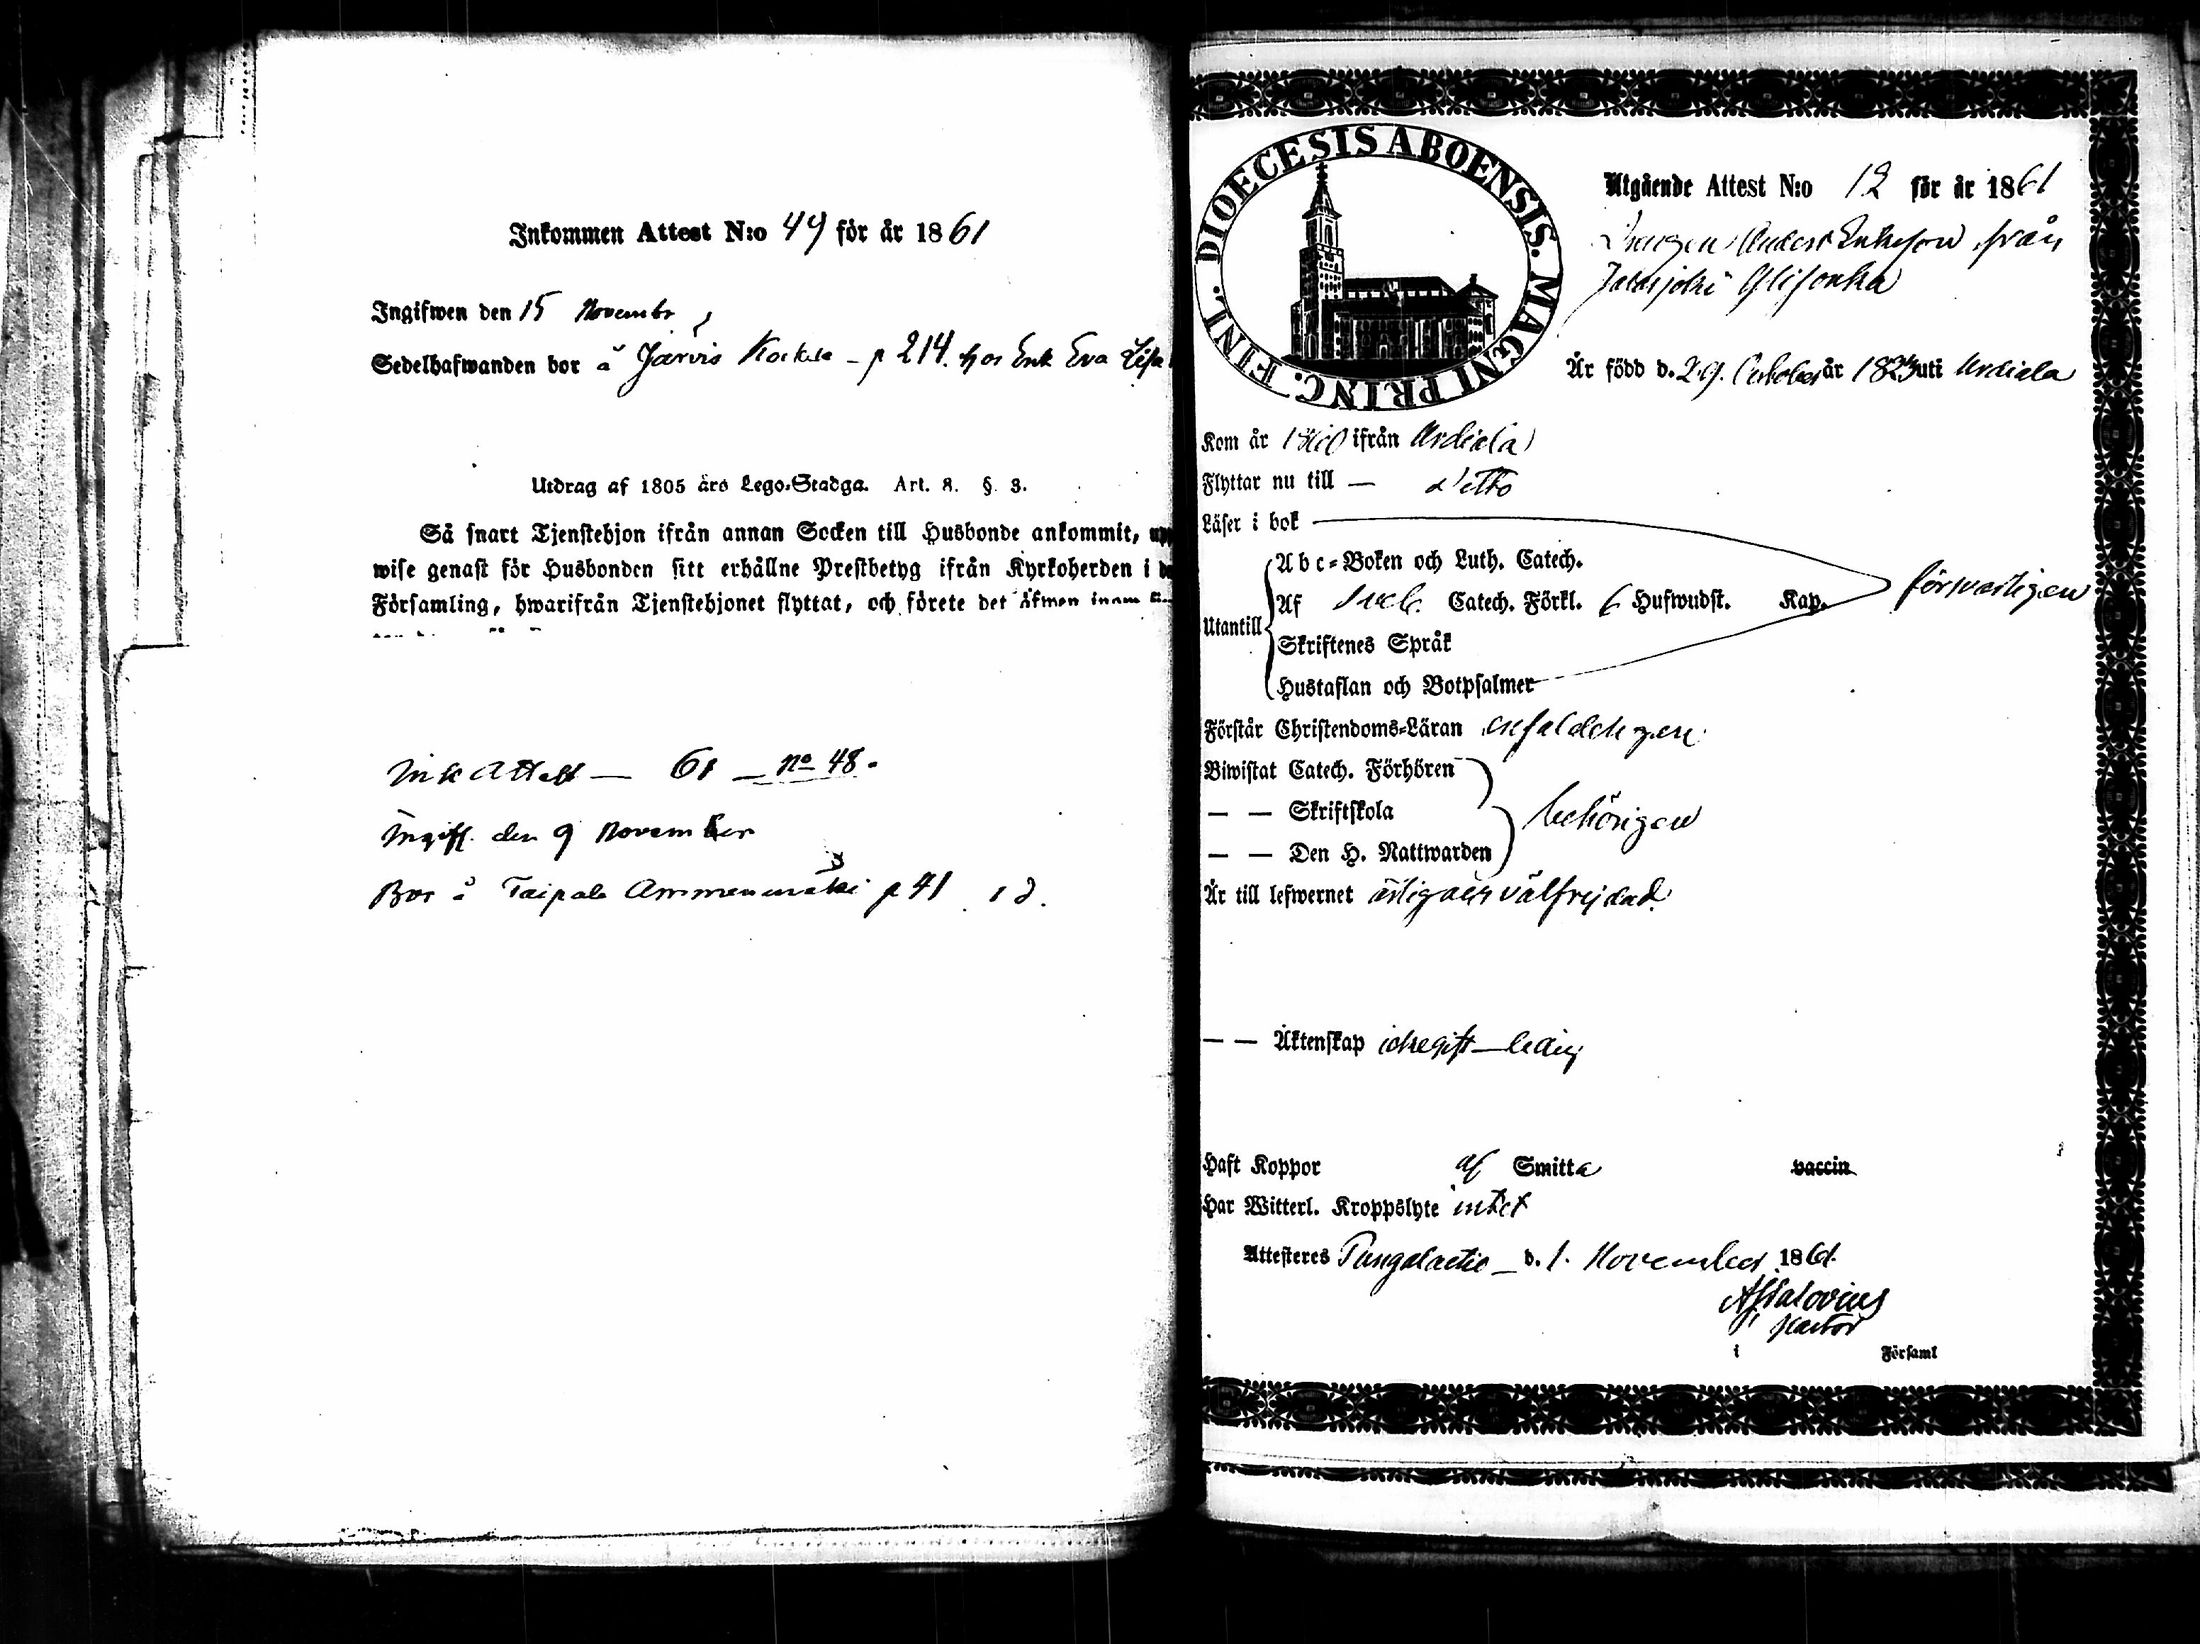 Inkommen Attest N:o 49 för år 1861
Ingifwen den 15 Novembr
Sedelhafwanden bor å Järvis p 214. hos Enk Eva Lisa
Utdrag af 1805 års Lego-Stadga. Art. 8. §. 3.
Så snart Tjenstehjon ifrån annan Socken till Husbonde ankommit,
wise genast för Husbonden sitt erhållne Prestbetyg ifrån Kyrkoherden i
Församling, hwarifrån Tjenstehjonet flyttat, och förete det äfwen inom
Ink Attest — 61 — no 48.
Ingifv. den 9 November
Bor å Taipale Ammenmäki p 41
DIOECESIS ABOENSIS. MAGNI PRINC. FINL.
Utgående Attest N:o 12 för år 1861
Drengen Anders Eriksson från
Är född d. 29. October år uti Urdiala
Kom år 1860 ifrån Urdiala
Flyttar nu till — Detto
Läser i bok
Abc-Boken och Luth. Catech.
Af Sveb. Catech. Förkl. 6 Hufwudst. Kap. försvarligen
Utantill
Skriftenes Språk
Hustaflan och Botpsalmer
Förstår Christendoms-Läran enfaldeligen
Biwistat Catech. Förhören
— — Skriftskola behörigen
— — Den H. Nattwarden
Är till lefwernet ärlig och välfrejdad.
— — Äktenskap ickegift — ledig
Haft Koppor af Smitta vaccin
Har Witterl. Kroppslyte intet
Attesteres Pungalaitio — d. 1. November 1861.
Pastor
i Församl